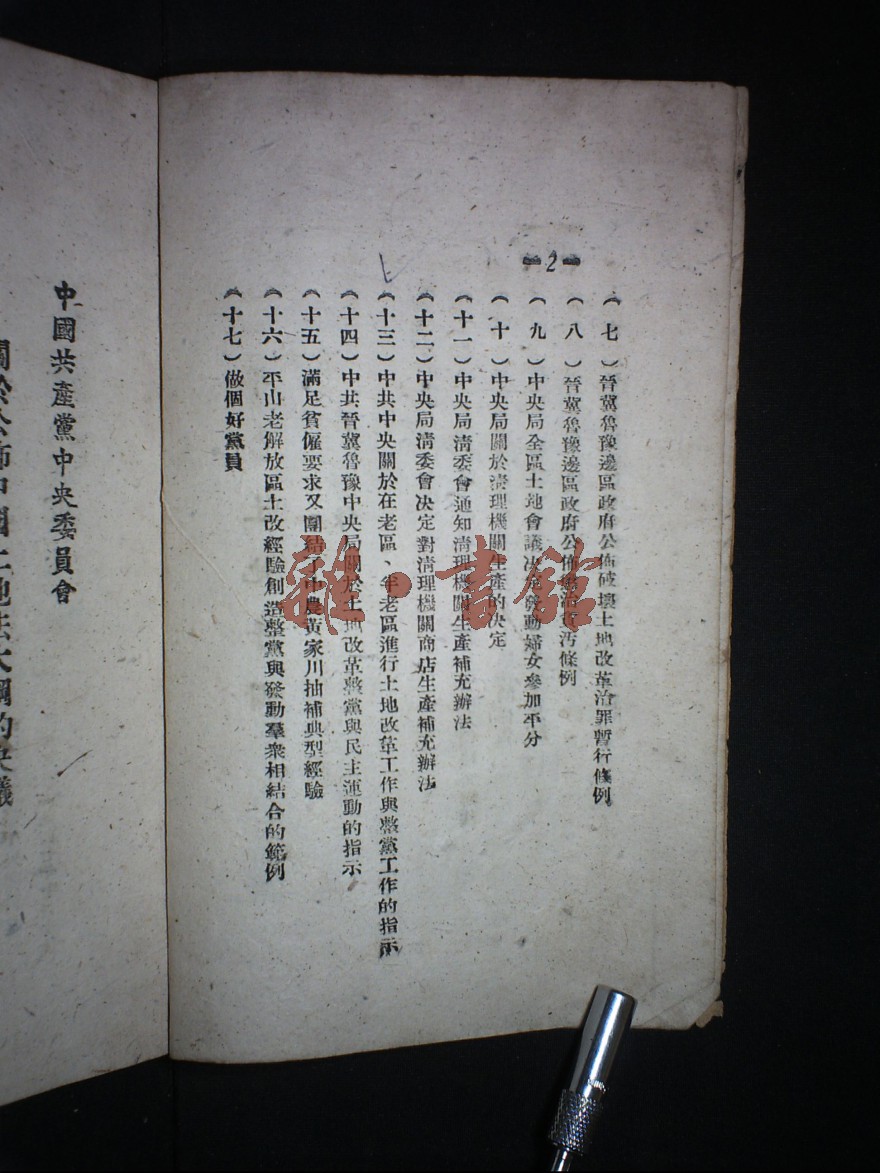 —2—
(七)晉冀魯豫邊區政府公佈破壞土地改革治罪暫行條例
(八)晉冀魯豫邊區政府公佈懲治貪汚條例
(九)中央局全區土地會議决定發動婦女參加平分
(十)中央局關於清理機關生產的决定
(十一)中央局清委會通知清理機關生產補充辦法
(十二)中央局清委會决定對清理機關商店生產補充辦法
(十三)中共中央關於在老區、半老區進行土地改革工作與整黨工作的指示
(十四)中共晉冀魯豫中央局關於土地改革整黨與民主運動的指示
(十五)滿足貧僱要求又團結了中農黄家川抽補典型經驗
(十六)平山老解放區土改經驗創造整黨與發動羣衆相結合的範例
(十七)做個好黨員
中國共產黨中央委員會
關於公佈中國土地法大綱的决議
雜·書館